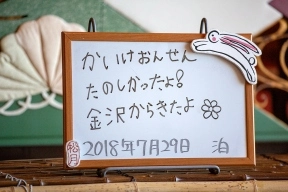 かいけおんせん
たのしかったよ!
金沢からきたよ
2018年7月29日 泊